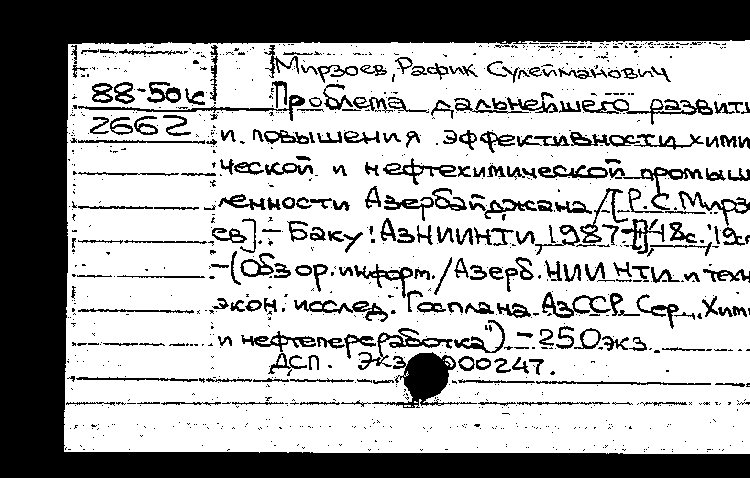 Мирзоев, Рафик Сулейманович
88-50к Проблема дальнейшего развити
2662 и повышения эффективности хими
ческой и нефтехимической промыш
ленности Азербайджана /[Р.С.Мирзо
ев].- Баку: АзНИИНТИ, 1987.- 48с.; 19см
-(Обзор. информ./Азерб. НИИ НТИ и техн
экон. исслед. Госплана АзССР. Сер. „Хим
и нефтепереработка") - 250экз.
ДСП. Экз 000247.